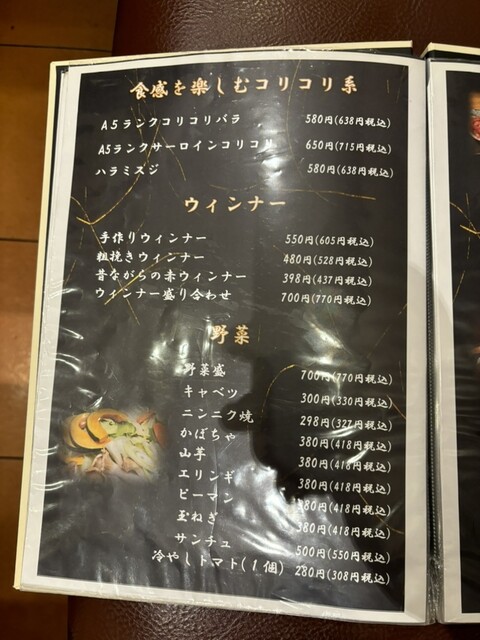 食感を楽しむコリコリ系
A5ランクコリコリバラ 580円(638円税込)
A5ランクサーロインコリコリ 650円(715円税込)
ハラミスジ 580円(638円税込)
ウィンナー
手作りウィンナー 550円(605円税込)
粗挽きウィンナー 480円(528円税込)
昔ながらの赤ウィンナー 398円(437円税込)
ウィンナー盛り合わせ 700円(770円税込)
野菜
野菜盛 700円(770円税込)
キャベツ 300円(330円税込)
ニンニク焼 298円(327円税込)
かぼちゃ 380円(418円税込)
山芋 380円(418円税込)
エリンギ 380円(418円税込)
ピーマン 380円(418円税込)
玉ねぎ 380円(418円税込)
サンチュ 500円(550円税込)
冷やしトマト(1個) 280円(308円税込)